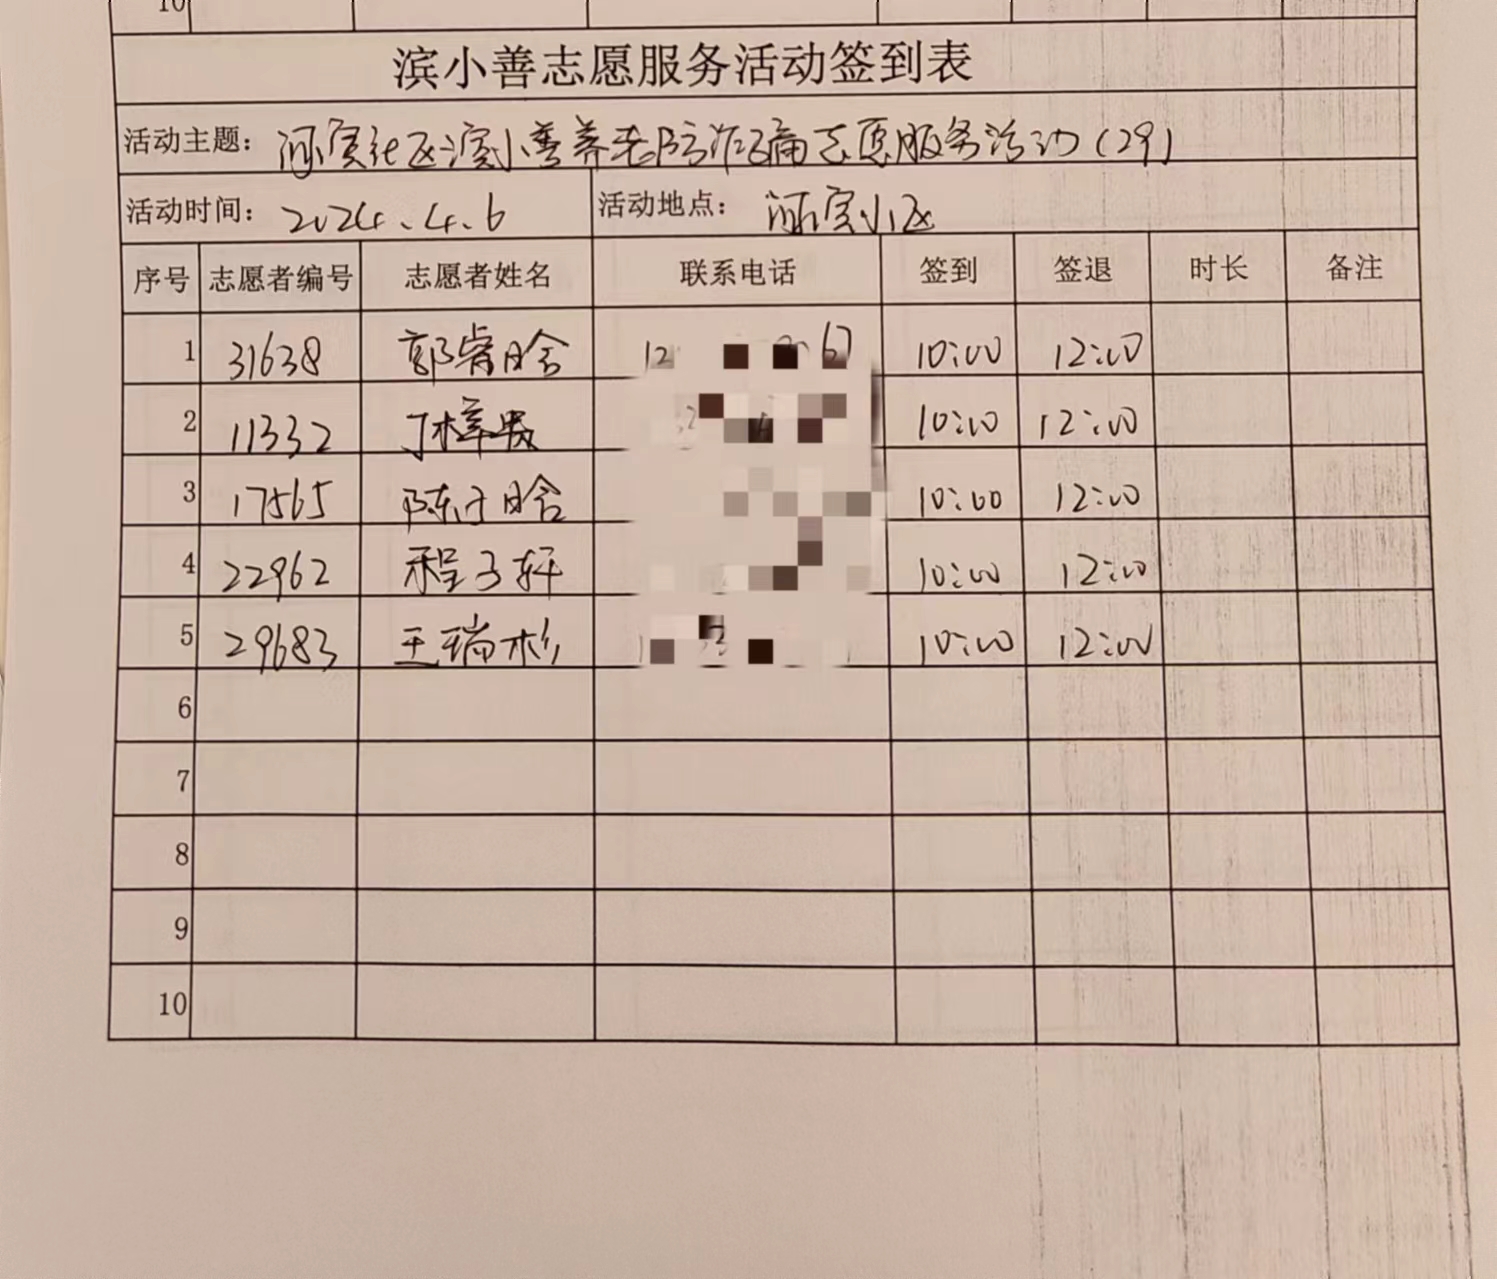 10
滨小善志愿服务活动签到表
活动主题：河滨社区滨小善养老防诈骗志愿服务活动（29）
活动时间：2024.4.6 活动地点：河滨小区
序号 志愿者编号 志愿者姓名 联系电话 签到 签退 时长 备注
1 31638 郭睿晗 12 67 10:00 12:00
2 11332 丁梓 10:00 12:00
3 17565 陈子晗 10:00 12:00
4 22962 程子轩 10:00 12:00
5 29683 王瑞杉 10:00 12:00
6
7
8
9
10